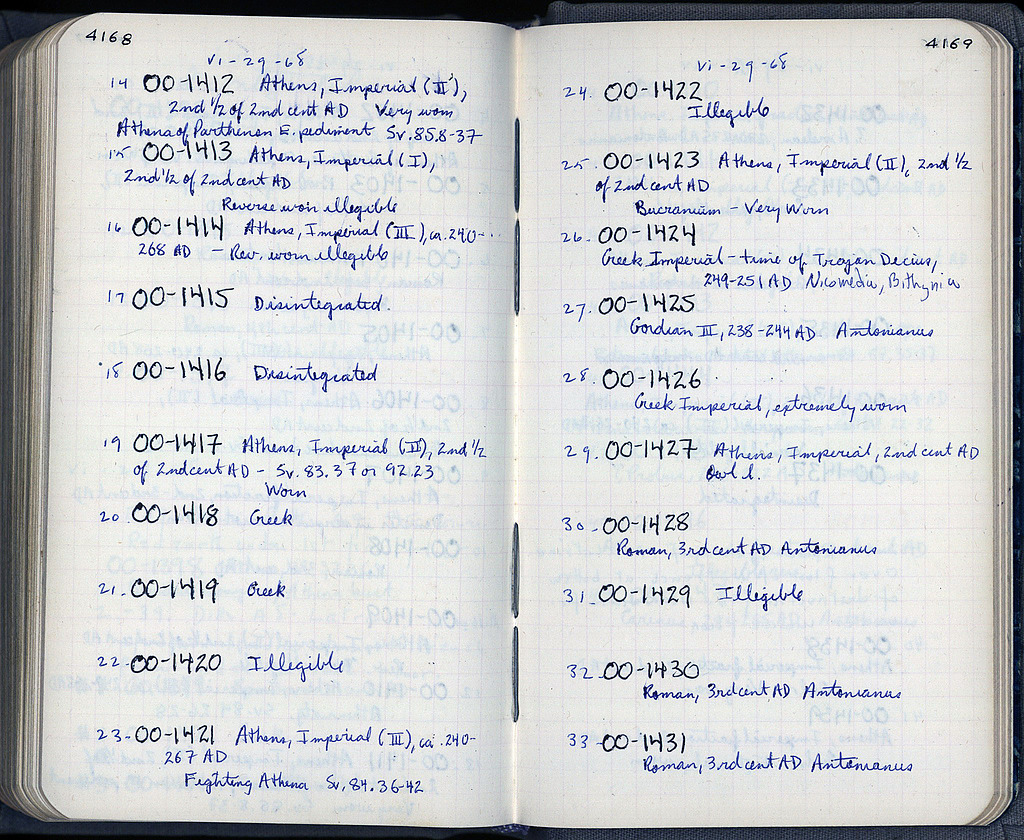 4168
VI-29-68
14 OO-1412 Athens, Imperial (II),
2nd 1/2 of 2nd cent AD Very worn
Athena of Parthenon E. pediment Sv. 85.8-37
15 OO-1413 Athens, Imperial (I),
2nd 1/2 of 2nd cent AD
Reverse worn illegible
16 OO-1414 Athens, Imperial (III), ca. 240-
268 AD - Rev. worn illegible
17 OO-1415 Disintegrated.
18 OO-1416 Disintegrated
19 OO-1417 Athens, Imperial (II), 2nd 1/2
of 2nd cent AD - Sv. 83.37 or 92.23
Worn
20 OO-1418 Greek
21. OO-1419 Greek
22- OO-1420 Illegible
23- OO-1421 Athens, Imperial (III), ca. 240-
267 AD
Fighting Athena Sv. 84.36-42
4169
VI-29-68
24. OO-1422
Illegible
25. OO-1423 Athens, Imperial (II), 2nd 1/2
of 2nd cent AD
Bucranium - Very Worn
26. OO-1424
Greek Imperial - time of Trajan Decius,
249-251 AD Nicomedia, Bithynia
27. OO-1425
Gordian III, 238-244 AD Antonianus
28. OO-1426
Greek Imperial, extremely worn
29. OO-1427 Athens, Imperial, 2nd cent AD
Owl
30- OO-1428
Roman, 3rd cent AD Antonianus
31. OO-1429 Illegible
32. OO-1430
Roman, 3rd cent AD Antonianus
33- OO-1431
Roman, 3rd cent AD Antonianus